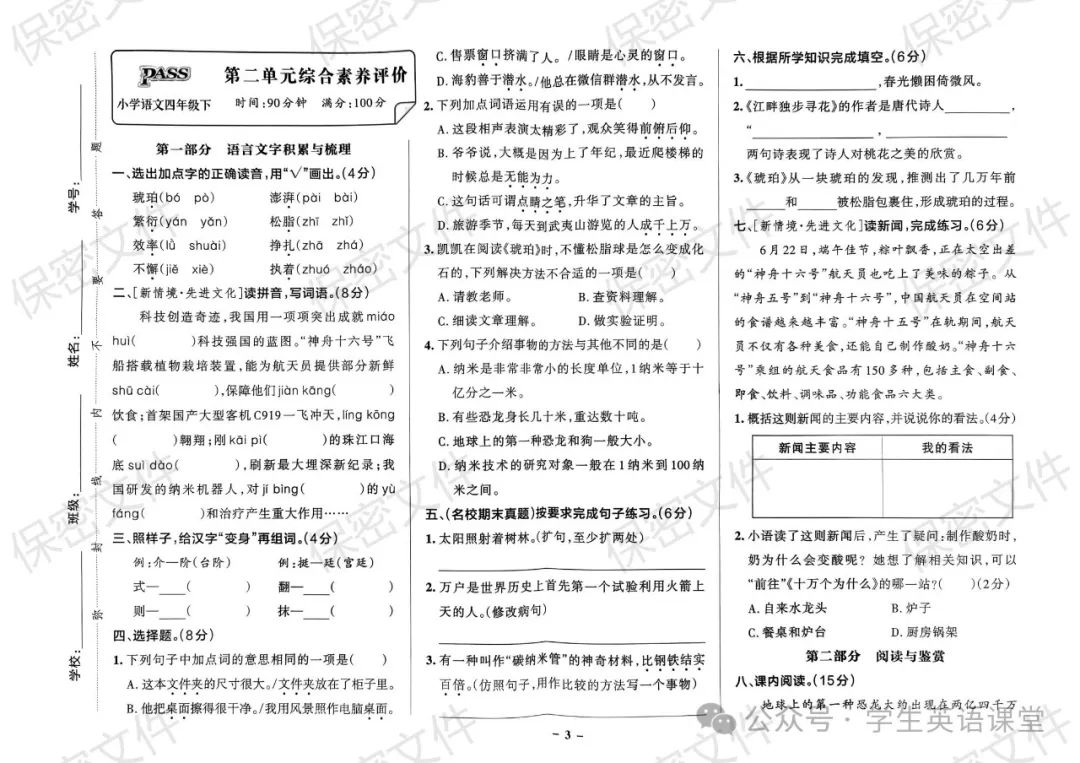 PASS
第二单元综合素养评价
小学语文四年级下 时间:90分钟 满分:100分
学号:
姓名:
班级:
学校:
弥 封 线 内 不 要 答 题
第一部分 语言文字积累与梳理
一、选出加点字的正确读音,用“√”画出。(4分)
琥珀(bó pò) 澎湃(pài bài)
繁衍(yán yǎn) 松脂(zhī zhǐ)
效率(lǜ shuài) 挣扎(zhā zhá)
不懈(jiě xiè) 执着(zhuó zháo)
二、[新情境·先进文化]读拼音,写词语。(8分)
科技创造奇迹,我国用一项项突出成就miáo
huì( )科技强国的蓝图。“神舟十六号”飞
船搭载植物栽培装置,能为航天员提供部分新鲜
shū cài( ),保障他们jiàn kāng( )
饮食;首架国产大型客机C919一飞冲天,líng kōng
( )翱翔;刚kāi pì( )的珠江口海
底suì dào( ),刷新最大埋深新纪录;我
国研发的纳米机器人,对jí bìng( )的yù
fáng( )和治疗产生重大作用……
三、照样子,给汉字“变身”再组词。(4分)
例:介—阶(台阶) 例:挺—廷(宫廷)
式—___( ) 翻—___( )
则—___( ) 抹—___( )
四、选择题。(8分)
1.下列句子中加点词的意思相同的一项是( )
A.这本文件夹的尺寸很大。/文件夹放在了柜子里。
B.他把桌面擦得很干净。/我用风景照作电脑桌面。
C.售票窗口挤满了人。/眼睛是心灵的窗口。
D.海豹善于潜水。/他总在微信群潜水,从不发言。
2.下列加点词语运用有误的一项是( )
A.这段相声表演太精彩了,观众笑得前俯后仰。
B.爷爷说,大概是因为上了年纪,最近爬楼梯的
时候总是无能为力。
C.这句话可谓点睛之笔,升华了文章的主旨。
D.旅游季节,每天到武夷山游览的人成千上万。
3.凯凯在阅读《琥珀》时,不懂松脂球是怎么变成化
石的,下列解决方法不合适的一项是( )
A.请教老师。 B.查资料理解。
C.细读文章理解。 D.做实验证明。
4.下列句子介绍事物的方法与其他不同的是( )
A.纳米是非常非常小的长度单位,1纳米等于十
亿分之一米。
B.有些恐龙身长几十米,重达数十吨。
C.地球上的第一种恐龙和狗一般大小。
D.纳米技术的研究对象一般在1纳米到100纳
米之间。
五、(名校期末真题)按要求完成句子练习。(6分)
1.太阳照射着树林。(扩句,至少扩两处)
2.万户是世界历史上首先第一个试验利用火箭上
天的人。(修改病句)
3.有一种叫作“碳纳米管”的神奇材料,比钢铁结实
百倍。(仿照句子,用作比较的方法写一个事物)
– 3 –
六、根据所学知识完成填空。(6分)
1.____________,春光懒困倚微风。
2.《江畔独步寻花》的作者是唐代诗人________,
“____________,____________”
两句诗表现了诗人对桃花之美的欣赏。
3.《琥珀》从一块琥珀的发现,推测出了几万年前
____和____被松脂包裹住,形成琥珀的过程。
七、[新情境·先进文化]读新闻,完成练习。(6分)
6月22日,端午佳节,粽叶飘香,正在太空出差
的“神舟十六号”航天员也吃上了美味的粽子。从
“神舟五号”到“神舟十六号”,中国航天员在空间站
的食谱越来越丰富。“神舟十五号”在轨期间,航天
员不仅有各种美食,还能自己制作酸奶。“神舟十六
号”乘组的航天食品有150多种,包括主食、副食、
即食、饮料、调味品、功能食品六大类。
1.概括这则新闻的主要内容,并说说你的看法。(4分)
新闻主要内容 我的看法
2.小语读了这则新闻后,产生了疑问:制作酸奶时,
奶为什么会变酸呢?她想了解相关知识,可以
“前往”《十万个为什么》的哪一站?( )(2分)
A.自来水龙头 B.炉子
C.餐桌和炉台 D.厨房锅架
第二部分 阅读与鉴赏
八、课内阅读。(15分)
地球上的第一种恐龙大约出现在两亿四千万
公众号·学生英语课堂
保密文件